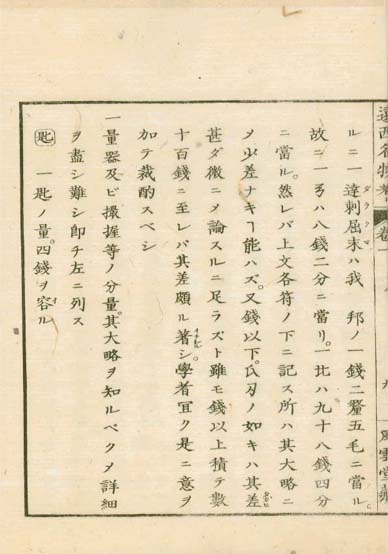 遠西名物考 卷一
風雲堂藏
ルニ一達刺屈末ハ我 邦ノ一錢二釐五毛ニ當ル
ダラクマ
故ニ一ヲハ八錢二分ニ當リ。一比ハ九十八錢四分
ニ當ル。然レバ上文各符ノ下ニ記ス所ハ其大略ニ
メ少差ナキヿ能ハズ。又錢以下。氏刄ノ如キハ其差
甚ダ微ニメ論スルニ足ラズト雖モ錢以上積テ數
十百錢ニ至レバ其差頗ル著シ。學者宜ク是ニ意ヲ
加テ裁酌スベシ
一量器及ビ撮握等ノ分量。其大略ヲ知ルベクメ詳細
ヲ盡シ難シ即チ左ニ列ス
匙 一匙ノ量。四錢ヲ容ル